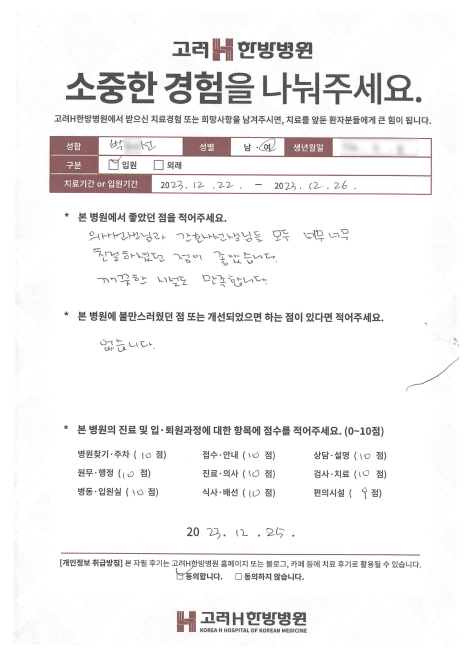 고려H한방병원
소중한 경험을 나눠주세요.
고려H한방병원에서 받으신 치료경험 또는 희망사항을 남겨주시면, 치료를 앞둔 환자분들에게 큰 힘이 됩니다.
성함 박 선 성별 남·여 생년월일
구분 ☑ 입원 □ 외래
치료기간 or 입원기간 2023.12.22. - 2023.12.26.
* 본 병원에서 좋았던 점을 적어주세요.
의사선생님과 간호사선생님들 모두 너무너무
친절하셨던 점이 좋았습니다.
깨끗한 시설도 만족합니다.
* 본 병원에 불만스러웠던 점 또는 개선되었으면 하는 점이 있다면 적어주세요.
없습니다.
* 본 병원의 진료 및 입·퇴원과정에 대한 항목에 점수를 적어주세요. (0~10점)
병원찾기·주차 (10 점) 접수·안내 (10 점) 상담·설명 (10 점)
원무·행정 (10 점) 진료·의사 (10 점) 검사·치료 (10 점)
병동·입원실 (10 점) 식사·배선 (10 점) 편의시설 ( 9 점)
20 23. 12. 25.
[개인정보 취급방침] 본 자필 후기는 고려H한방병원 홈페이지 또는 블로그, 카페 등에 치료 후기로 활용될 수 있습니다.
☑ 동의합니다. □ 동의하지 않습니다.
고려H한방병원
KOREA H HOSPITAL OF KOREAN MEDICINE